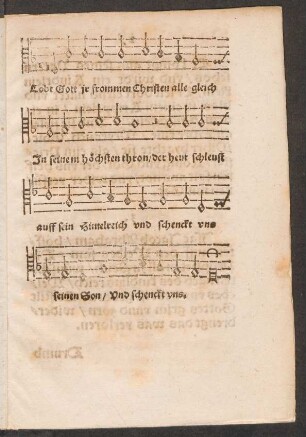 Lobt Gott jr frommen Christen alle gleich
In seinem höchsten thron/der heut schleust
auff sein Himelreich vnd schenckt vns
seinen Son / Vnd schenckt vns.